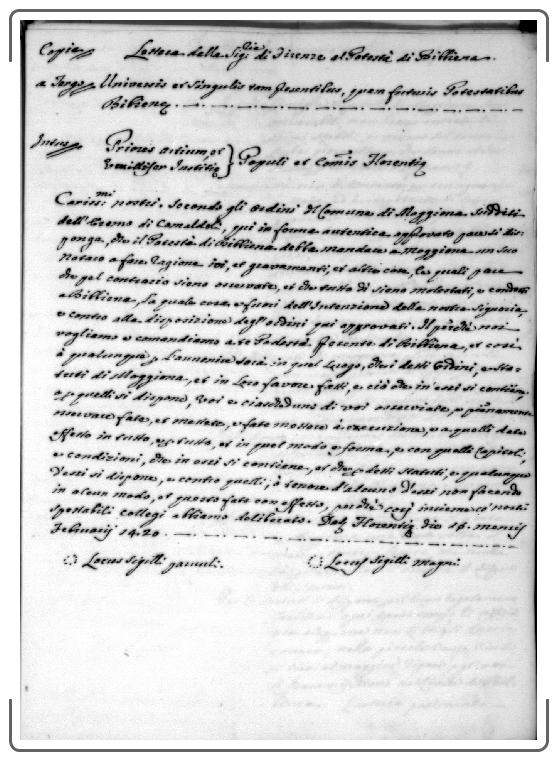 Copia Lettera della Sig.ria di Firenze al Potestà di Bibbiena.
a Tergo Universis et Singulis tam presentibus, quam futuris Potestatibus
Bibienę.
Intus Priores Artium, et
Vexillifer Iustitię } Populi et Com̃is Florentię
Caris.mi nostri. Secondo gli ordini del Comune di Moggiona sudditi
dell'Eremo di Camaldoli, qui in forma autentica approvato pare si dis-
ponga, che il Potestà di Bibbiena debba mandare a Moggiona un suo
notaro a fare ragione ivi, et gravamenti, et altre cose, le quali pare
che pel contrario sieno osservate, et che tutto dì sieno molestati, e condotti
a Bibbiena, la quale cosa è fuori dell'Intenzione della nostra Signoria,
e contro alla disposizione degl'ordini qui approvati. Il perchè noi
vogliamo e comandiamo a te Podestà presente di Bibbiena, et così
à qualunque per l'avvenire sarà in quel luogo, che i detti Ordini, e Sta-
tuti di Moggiona, et in loro favore fatti, e ciò che in essi si contiene,
e per quelli si dispone, voi e ciascheduno di voi osserviate, e pienamente
osservare fate, et mettete, e fate mettere à esecuzione, e a quelli date
effetto in tutto, e per tutto, et in quel modo e forma, e con quelli capitoli,
e condizioni, che in essi si contiene, et che per detti statuti, e qualunque
d'essi si dispone, e contro quelli, ò tenore d'alcuno d'essi non facendo
in alcun modo, et questo fate con effetto, perchè così insieme co' nostri
spettabili Collegi abbiamo deliberato. Dat. Florentię die 15. mensis
Februarij 1420.
Locus Sigilli parvuli. Locus Sigilli magni.